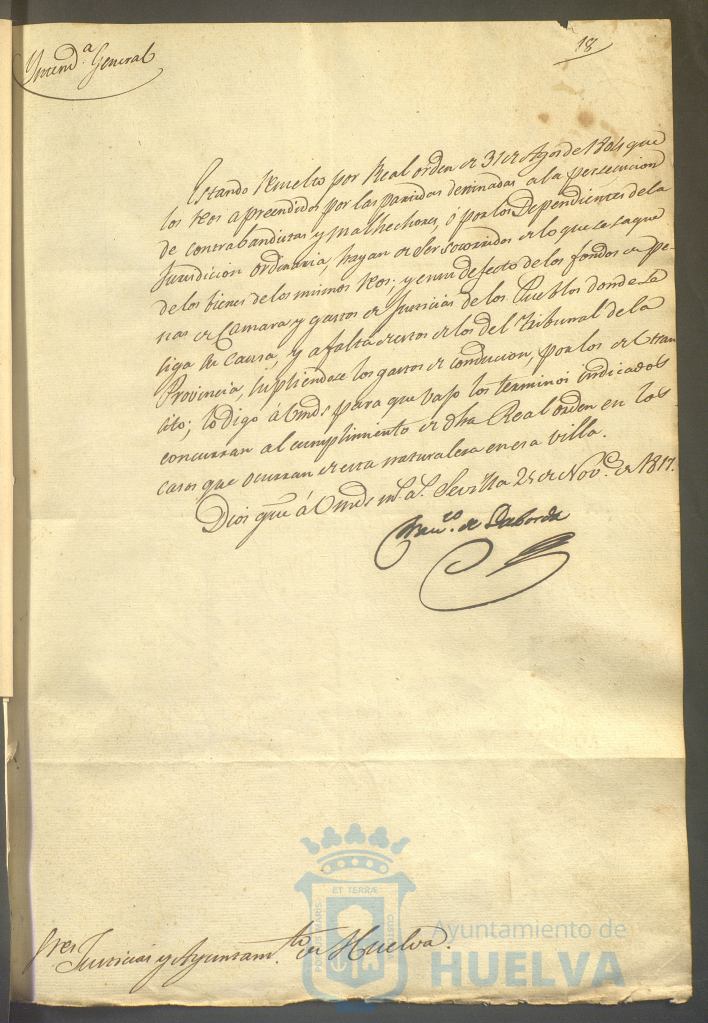 Yntend.ª General
18
Estando resuelto por Real orden de 31 de Agosto de 1804 que
los reos apreendidos por las partidas destinadas a la persecucion
de contrabandistas y malhechores, ó por los Dependientes de la
Jurisdicion ordinaria, hayan de ser socorridos de lo que se saque
de los bienes de los mismos reos; y en su defecto de los fondos de pe-
nas de Camara y gastos de Justicia de los Pueblos donde se la
siga la causa, y a falta de estos de los del Tribunal de la
Provincia, supliendose los gastos de conducion, por los de Tran
sito; lo digo á Vmds para que vajo los terminos indicados
concurran al cumplimiento de dha Real orden en los
casos que ocurran de esta naturaleza en esa villa.
Dios gue á Vmds m.s a.s Sevilla 25 de Nov.e de 1817.
Fran.co de Laborda
Sres Justicia y Ayuntam.to de Huelva.
ET TERRÆ
PORTUS MARIS
CUSTODIA
Ayuntamiento de
HUELVA